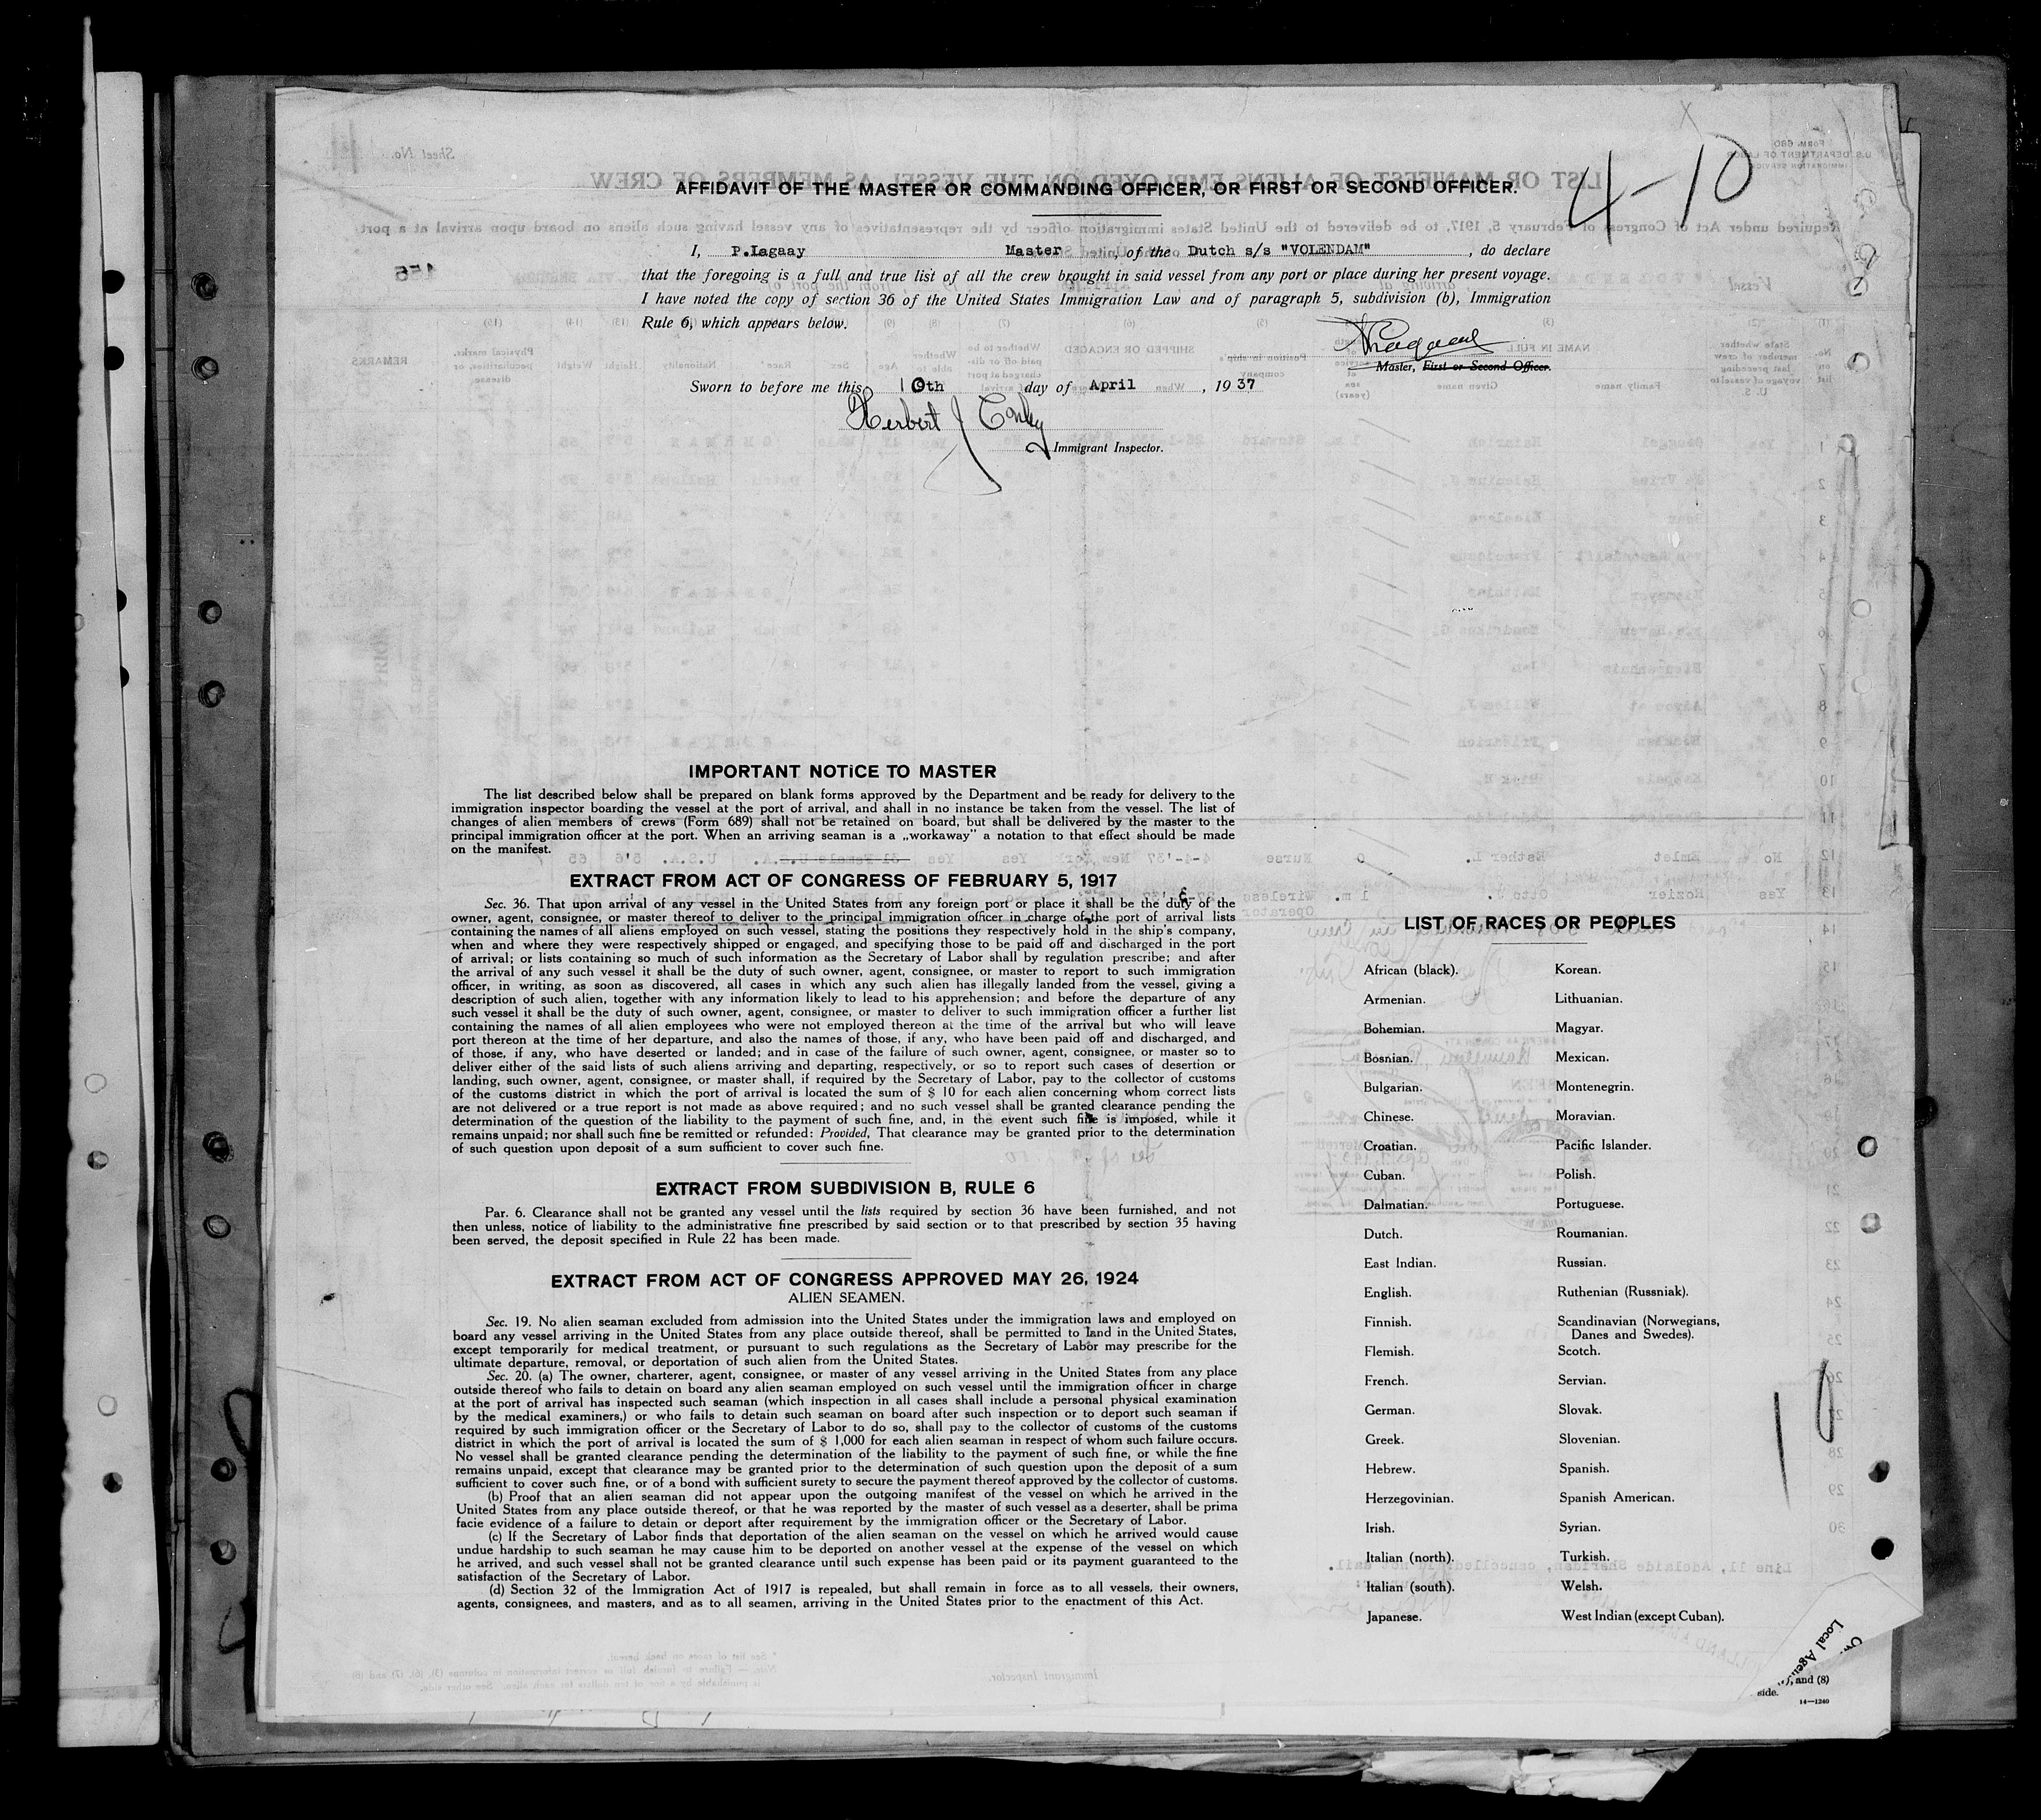 4-10
AFFIDAVIT OF THE MASTER OR COMMANDING OFFICER, OR FIRST OR SECOND OFFICER.
I, P.Lagaay Master, of the Dutch s/s "VOLENDAM", do declare
that the foregoing is a full and true list of all the crew brought in said vessel from any port or place during her present voyage.
I have noted the copy of section 36 of the United States Immigration Law and of paragraph 5, subdivision (b), Immigration
Rule 6, which appears below.
Master, First or Second Officer.
Sworn to before me this 10th day of April, 1937
Herbert J Conley
Immigrant Inspector.
IMPORTANT NOTICE TO MASTER
The list described below shall be prepared on blank forms approved by the Department and be ready for delivery to the
immigration inspector boarding the vessel at the port of arrival, and shall in no instance be taken from the vessel. The list of
changes of alien members of crews (Form 689) shall not be retained on board, but shall be delivered by the master to the
principal immigration officer at the port. When an arriving seaman is a „workaway" a notation to that effect should be made
on the manifest.
EXTRACT FROM ACT OF CONGRESS OF FEBRUARY 5, 1917
Sec. 36. That upon arrival of any vessel in the United States from any foreign port or place it shall be the duty of the
owner, agent, consignee, or master thereof to deliver to the principal immigration officer in charge of the port of arrival lists
containing the names of all aliens employed on such vessel, stating the positions they respectively hold in the ship's company,
when and where they were respectively shipped or engaged, and specifying those to be paid off and discharged in the port
of arrival; or lists containing so much of such information as the Secretary of Labor shall by regulation prescribe; and after
the arrival of any such vessel it shall be the duty of such owner, agent, consignee, or master to report to such immigration
officer, in writing, as soon as discovered, all cases in which any such alien has illegally landed from the vessel, giving a
description of such alien, together with any information likely to lead to his apprehension; and before the departure of any
such vessel it shall be the duty of such owner, agent, consignee, or master to deliver to such immigration officer a further list
containing the names of all alien employees who were not employed thereon at the time of the arrival but who will leave
port thereon at the time of her departure, and also the names of those, if any, who have been paid off and discharged, and
of those, if any, who have deserted or landed; and in case of the failure of such owner, agent, consignee, or master so to
deliver either of the said lists of such aliens arriving and departing, respectively, or so to report such cases of desertion or
landing, such owner, agent, consignee, or master shall, if required by the Secretary of Labor, pay to the collector of customs
of the customs district in which the port of arrival is located the sum of $ 10 for each alien concerning whom correct lists
are not delivered or a true report is not made as above required; and no such vessel shall be granted clearance pending the
determination of the question of the liability to the payment of such fine, and, in the event such fine is imposed, while it
remains unpaid; nor shall such fine be remitted or refunded: Provided, That clearance may be granted prior to the determination
of such question upon deposit of a sum sufficient to cover such fine.
EXTRACT FROM SUBDIVISION B, RULE 6
Par. 6. Clearance shall not be granted any vessel until the lists required by section 36 have been furnished, and not
then unless, notice of liability to the administrative fine prescribed by said section or to that prescribed by section 35 having
been served, the deposit specified in Rule 22 has been made.
EXTRACT FROM ACT OF CONGRESS APPROVED MAY 26, 1924
ALIEN SEAMEN.
Sec. 19. No alien seaman excluded from admission into the United States under the immigration laws and employed on
board any vessel arriving in the United States from any place outside thereof, shall be permitted to land in the United States,
except temporarily for medical treatment, or pursuant to such regulations as the Secretary of Labor may prescribe for the
ultimate departure, removal, or deportation of such alien from the United States.
Sec. 20. (a) The owner, charterer, agent, consignee, or master of any vessel arriving in the United States from any place
outside thereof who fails to detain on board any alien seaman employed on such vessel until the immigration officer in charge
at the port of arrival has inspected such seaman (which inspection in all cases shall include a personal physical examination
by the medical examiners,) or who fails to detain such seaman on board after such inspection or to deport such seaman if
required by such immigration officer or the Secretary of Labor to do so, shall pay to the collector of customs of the customs
district in which the port of arrival is located the sum of $ 1,000 for each alien seaman in respect of whom such failure occurs.
No vessel shall be granted clearance pending the determination of the liability to the payment of such fine, or while the fine
remains unpaid, except that clearance may be granted prior to the determination of such question upon the deposit of a sum
sufficient to cover such fine, or of a bond with sufficient surety to secure the payment thereof approved by the collector of customs.
(b) Proof that an alien seaman did not appear upon the outgoing manifest of the vessel on which he arrived in the
United States from any place outside thereof, or that he was reported by the master of such vessel as a deserter, shall be prima
facie evidence of a failure to detain or deport after requirement by the immigration officer or the Secretary of Labor.
(c) If the Secretary of Labor finds that deportation of the alien seaman on the vessel on which he arrived would cause
undue hardship to such seaman he may cause him to be deported on another vessel at the expense of the vessel on which
he arrived, and such vessel shall not be granted clearance until such expense has been paid or its payment guaranteed to the
satisfaction of the Secretary of Labor.
(d) Section 32 of the Immigration Act of 1917 is repealed, but shall remain in force as to all vessels, their owners,
agents, consignees, and masters, and as to all seamen, arriving in the United States prior to the enactment of this Act.
LIST OF RACES OR PEOPLES
African (black).
Armenian.
Bohemian.
Bosnian.
Bulgarian.
Chinese.
Croatian.
Cuban.
Dalmatian.
Dutch.
East Indian.
English.
Finnish.
Flemish.
French.
German.
Greek.
Hebrew.
Herzegovinian.
Irish.
Italian (north).
Italian (south).
Japanese.
Korean.
Lithuanian.
Magyar.
Mexican.
Montenegrin.
Moravian.
Pacific Islander.
Polish.
Portuguese.
Roumanian.
Russian.
Ruthenian (Russniak).
Scandinavian (Norwegians,
Danes and Swedes).
Scotch.
Servian.
Slovak.
Slovenian.
Spanish.
Spanish American.
Syrian.
Turkish.
Welsh.
West Indian (except Cuban).
10
Local
, and (8)
side.
14—1240